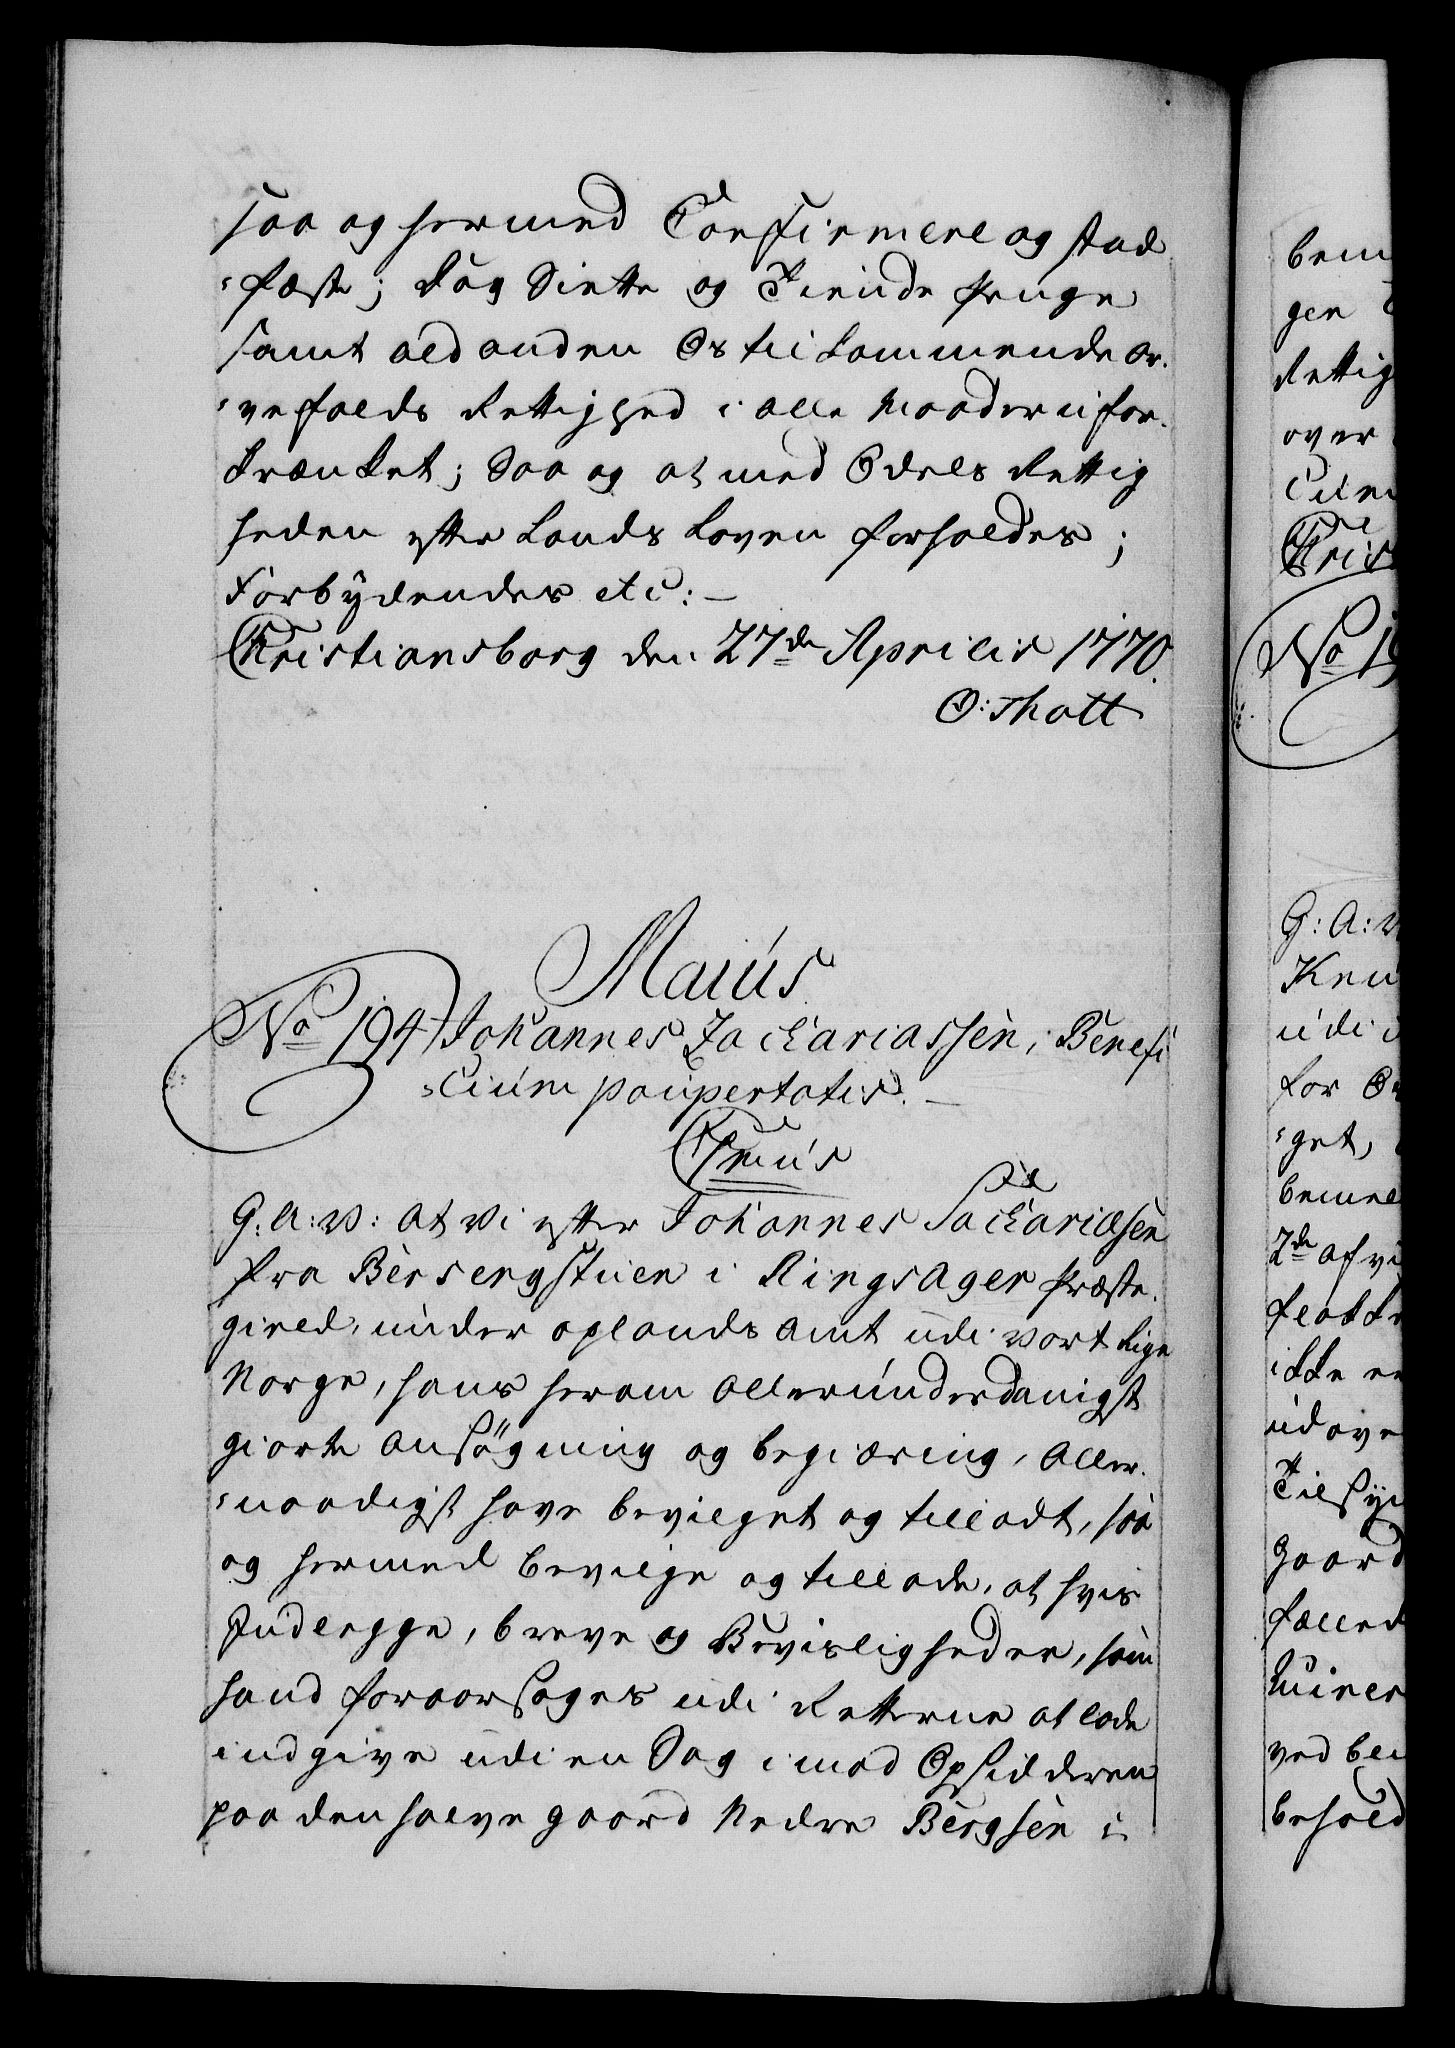 saa og hermed Confirmere og stad
-fæste; dog Siette og Tiende Penge
samt ald anden Os tilkommende Ar-
-vefalds Rettighed i alle Maader ufor-
krænket; Saa og at med Odels Rettig
heden efter Lands Loven forholdes;
Forbydendes etc:
Christiansborg den 27de Aprilis 1770.
O: Thott
Maiús
No 194 Johannes Zachariassen, Benefi
-cium paupertatis.
G: A: V: At Vi efter Johannes Sachariæsen
fra Bersengstuen i Ringsager Præste-
gield, under Oplands Amt udi Vort Rige
Norge, hans herom allerunderdanigst
giorte Ansøgning og begiæring, Aller-
-naadigst have bevilget og tilladt, saa
og hermed bevilge og tillade, at hvis
Indlegge, breve og Bevisligheder, som
hand foraarsages udi Retterne at lade
indgive udi en Sag imod Opsidderen
paa den halve gaard Nedre Bergsen i
bem
gen
Rettig
over
Chris
No 19
G: A: V
Knu
udi
for
-get,
bemel
2de af vi
ikke
udove
Tilsyn
gaard
ved
behold